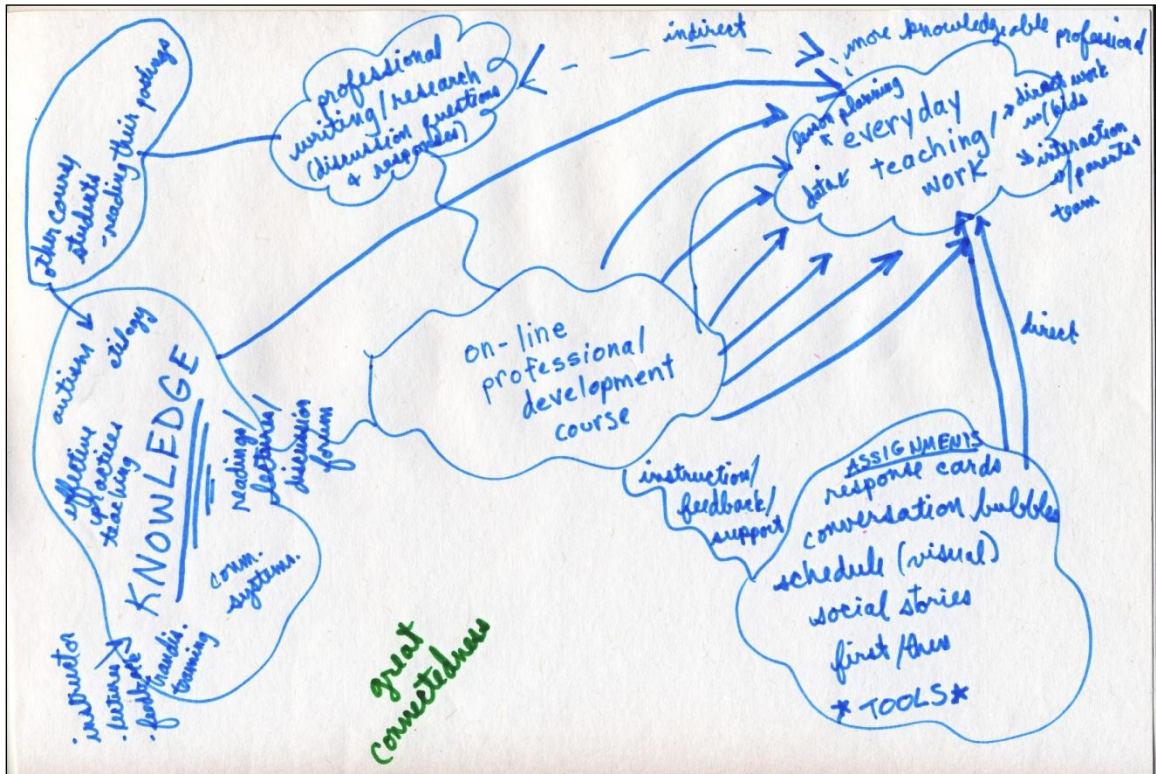 other course
students
-reading their postings
professional
writing/research
(discussion questions
& responses)
indirect
more knowledgeable professional
lesson planning
everyday
teaching/
work
data
direct work
w/kids
interaction
w/parents
team
on-line
professional
development
course
direct
autism
etiology
effective
practices
teaching
KNOWLEDGE
readings/
lectures/
discussion
forum
comm.
systems.
transdis.
training
instructor
·lectures
·feedback
instruction/
feedback/
support
ASSIGNMENTS
response cards
conversation bubbles
schedule (visual)
social stories
first/then
*TOOLS*
great
connectedness